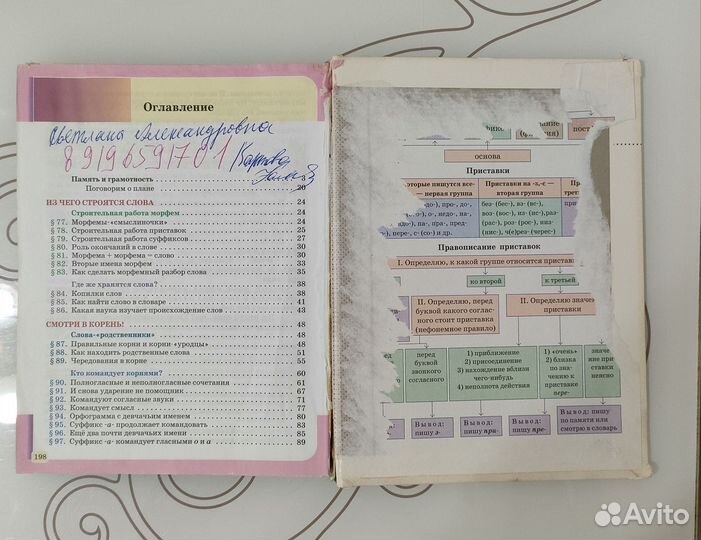 Оглавление
Светлана Александровна
89196591701
Память и грамотность 3
Поговорим о плане 20
ИЗ ЧЕГО СТРОЯТСЯ СЛОВА 24
Строительная работа морфем 24
§ 77. Морфемы-«смыслиночки» 24
§ 78. Строительная работа приставок 25
§ 79. Строительная работа суффиксов 27
§ 80. Роль окончаний в слове 30
§ 81. Морфема + морфема = слово 30
§ 82. Вторые имена морфем 33
§ 83. Как сделать морфемный разбор слова 35
Где же хранятся слова? 38
§ 84. Копилки слов 38
§ 85. Как найти слово в словаре 41
§ 86. Какая наука изучает происхождение слов 43
СМОТРИ В КОРЕНЬ! 48
Слова-«родственники» 48
§ 87. Правильные корни и корни-«уродцы» 48
§ 88. Как находить родственные слова 51
§ 89. Чередования в корне 55
Кто командует корнями? 60
§ 90. Полногласные и неполногласные сочетания 61
§ 91. И снова ударение не помощник 67
§ 92. Командуют согласные звуки 71
§ 93. Командует смысл 77
§ 94. Орфограмма с девчачьим именем 80
§ 95. Суффикс -а- продолжает командовать 83
§ 96. Ещё два почти девчачьих имени 85
§ 97. Суффикс -а- командует гласными о и а 89
198
основа
Приставки
которые пишутся все-
— первая группа
Приставки на -з,-с —
вторая группа
без- (бес-), вз- (вс-),
воз- (вос-), из- (ис-), раз-
(рас-), роз- (рос-), низ-
(нис-), ч(е)рез- (черес-)
пере-, с- (со-) и др.
Правописание приставок
I. Определяю, к какой группе относится приставка
ко второй
к третьей
II. Определяю, перед
буквой какого соглас-
ного стоит приставка
(нефонемное правило)
II. Определяю значе
приставки
перед
буквой
звонкого
согласного
1) приближение
2) присоединение
3) нахождение вблизи
чего-нибудь
4) неполнота действия
1) «очень»
2) близка
по зна-
чению к
приставке
пере-
значе
ние при
ставки
неясно
Вывод:
пишу з-
Вывод:
пишу при-
Вывод:
пишу пре-
Вывод: пишу
по памяти или
смотрю в словарь
Avito